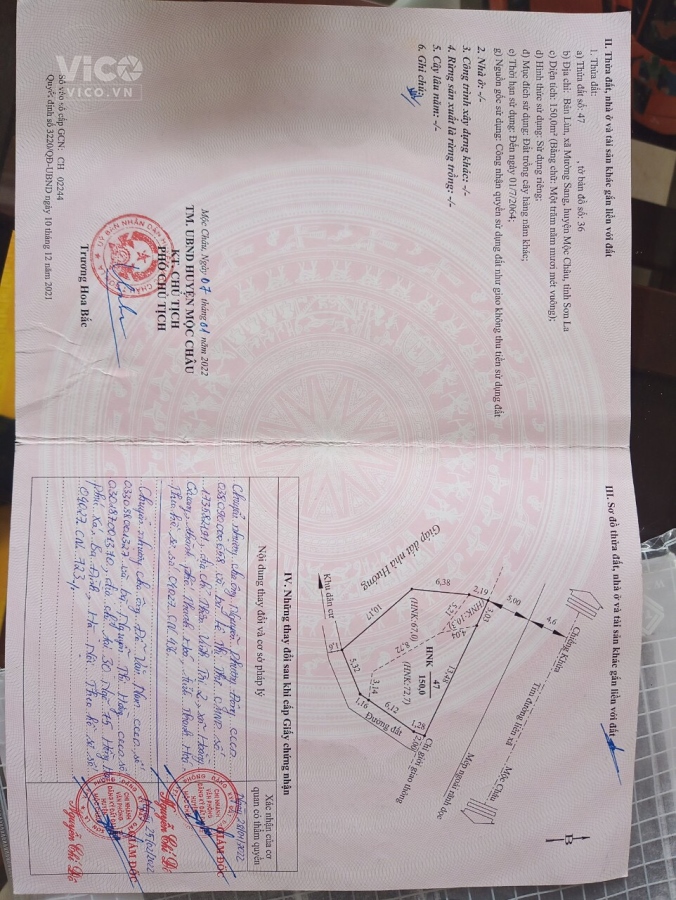 ViCO
VICO.VN
II. Thửa đất, nhà ở và tài sản khác gắn liền với đất
1. Thửa đất:
a) Thửa đất số: 47 , tờ bản đồ số: 36
b) Địa chỉ: Bản Lùn, xã Mường Sang, huyện Mộc Châu, tỉnh Sơn La
c) Diện tích: 150,0m² (Bằng chữ: Một trăm năm mươi mét vuông);
d) Hình thức sử dụng: Sử dụng riêng;
đ) Mục đích sử dụng: Đất trồng cây hàng năm khác;
e) Thời hạn sử dụng: Đến ngày 01/7/2064;
g) Nguồn gốc sử dụng: Công nhận quyền sử dụng đất như giao không thu tiền sử dụng đất
2. Nhà ở: -/-
3. Công trình xây dựng khác: -/-
4. Rừng sản xuất là rừng trồng: -/-
5. Cây lâu năm: -/-
6. Ghi chú:
Mộc Châu, Ngày 07 tháng 01 năm 2022
TM. UBND HUYỆN MỘC CHÂU
KT. CHỦ TỊCH
PHÓ CHỦ TỊCH
Trương Hoa Bắc
Số vào sổ cấp GCN: CH 02244
Quyết định số 3220/QĐ-UBND ngày 10 tháng 12 năm 2021
III. Sơ đồ thửa đất, nhà ở và tài sản khác gắn liền với đất
B
Chiềng Khừa
Tim đường liên xã
Mộc Châu
Mép ngoài rãnh dọc
Chỉ giới giao thông
4,6
5,00
2,19
3,01
6,38
5,21
4,04
(HNK:10,3)
(HNK:67,0)
Giáp đất nhà Hường
10,17
HNK
47
150,0
13,48
8,72
(HNK:72,7)
3,14
6,12
5,32
1,16
1,28
2,00
Đường đất
1,6
Khu dân cư
IV. Những thay đổi sau khi cấp Giấy chứng nhận
Nội dung thay đổi và cơ sở pháp lý
Xác nhận của cơ quan có thẩm quyền
Chuyển nhượng cho ông Nguyễn Phương Đông CCCD
038090000658 và bà Lê Thị Thư CMND số
173582191, địa chỉ
Thanh Hoá, tỉnh Thanh Hoá
Theo hồ sơ số 04027.CN.
GIÁM ĐỐC
Chuyển nhượng cho ông Đỗ Văn CCCD số
và bà Nguyễn Thị CCCD số
địa chỉ số 30 Ngõ 75
Ba Đình, Hà Nội. Theo hồ sơ số
04027.CN.
25/02/2022
GIÁM ĐỐC